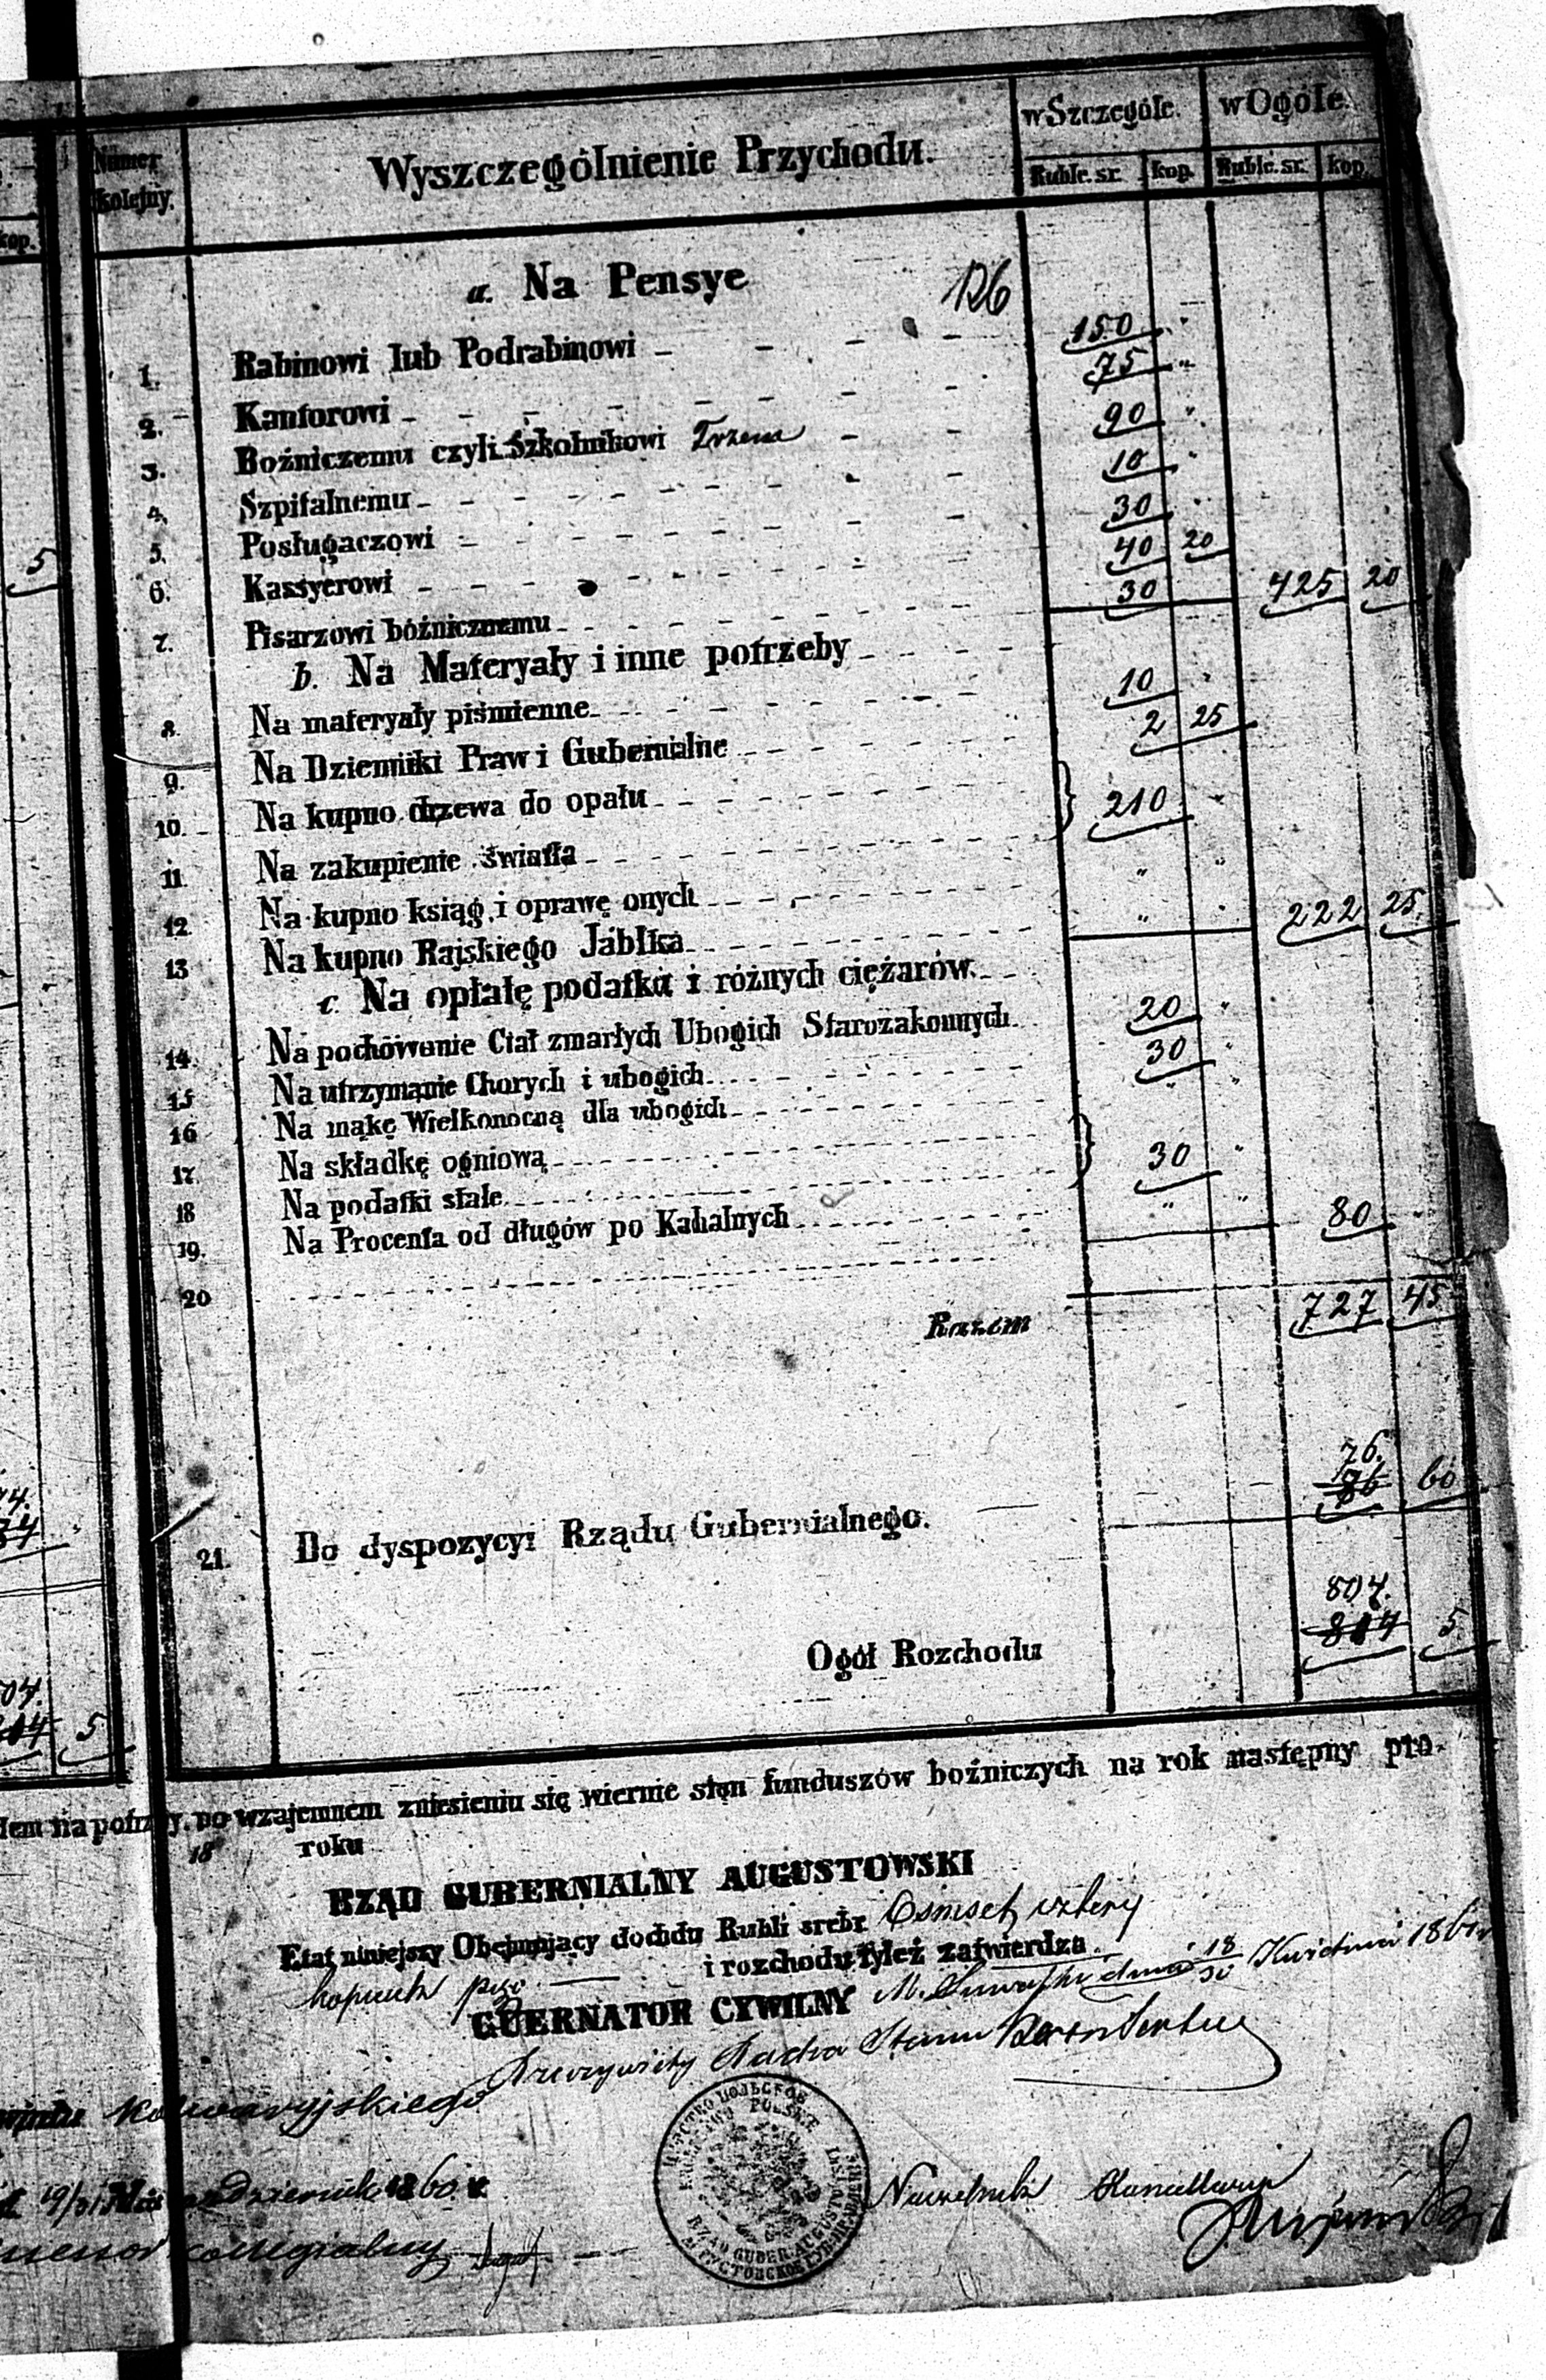 Numer kolejny.
Wyszczególnienie Przychodu.
w Szczególe. w Ogóle.
Ruble. sr. kop. Ruble. sr. kop.
kop.
a. Na Pensye
126
1. Rabinowi lub Podrabinowi 150 "
2. Kantorowi 75 "
3. Bożniczemu czyli Szkolnikowi Trzem 90 "
4. Szpitalnemu 10 "
5. Posługaczowi 30 "
6. Kassyerowi 40 20
7. Pisarzowi bóżnicznemu 30 425 20
5
b. Na Materyały i inne potrzeby
8. Na materyały piśmienne 10 "
9. Na Dzienniki Praw i Gubernialne 2 25
10. Na kupno drzewa do opału } 210 "
11. Na zakupienie światła
12 Na kupno ksiąg i oprawę onych " "
13 Na kupno Rajskiego Jabłka " " 222 25
c. Na opłatę podatku i różnych ciężarów
14. Na pochowanie Ciał zmarłych Ubogich Starozakonnych 20 "
15 Na utrzymanie Chorych i ubogich 30 "
16 Na mąkę Wielkonocną dla ubogich " "
17. Na składkę ogniową } 30 "
18 Na podatki stałe
19. Na Procenta od długów po Kahalnych " " 80 "
20
Razem 727 45
76.
21. Do dyspozycyi Rządu Gubernialnego. 86 60
804.
Ogół Rozchodu 814 5
04.
5
po wzajemnem zniesieniu się wiernie stan funduszów bożniczych na rok następny pro-
18 roku
RZĄD GUBERNIALNY AUGUSTOWSKI
Etat niniejszy Obejmujący dochdu Rubli srebr Osmset cztery
kopiejek pięć i rozchodu tyleż zatwierdza.
GUERNATOR CYWILNY M. Suwałki dnia 18/30 Kwietnia 1861 r
Rzeczywisty Radca Stanu
Kalwaryjskiego
19/31 Października 1860 r
Assessor Kollegialny
Naczelnik Kancellaryi
RZĄD GUBER. AUGUSTOWSKI